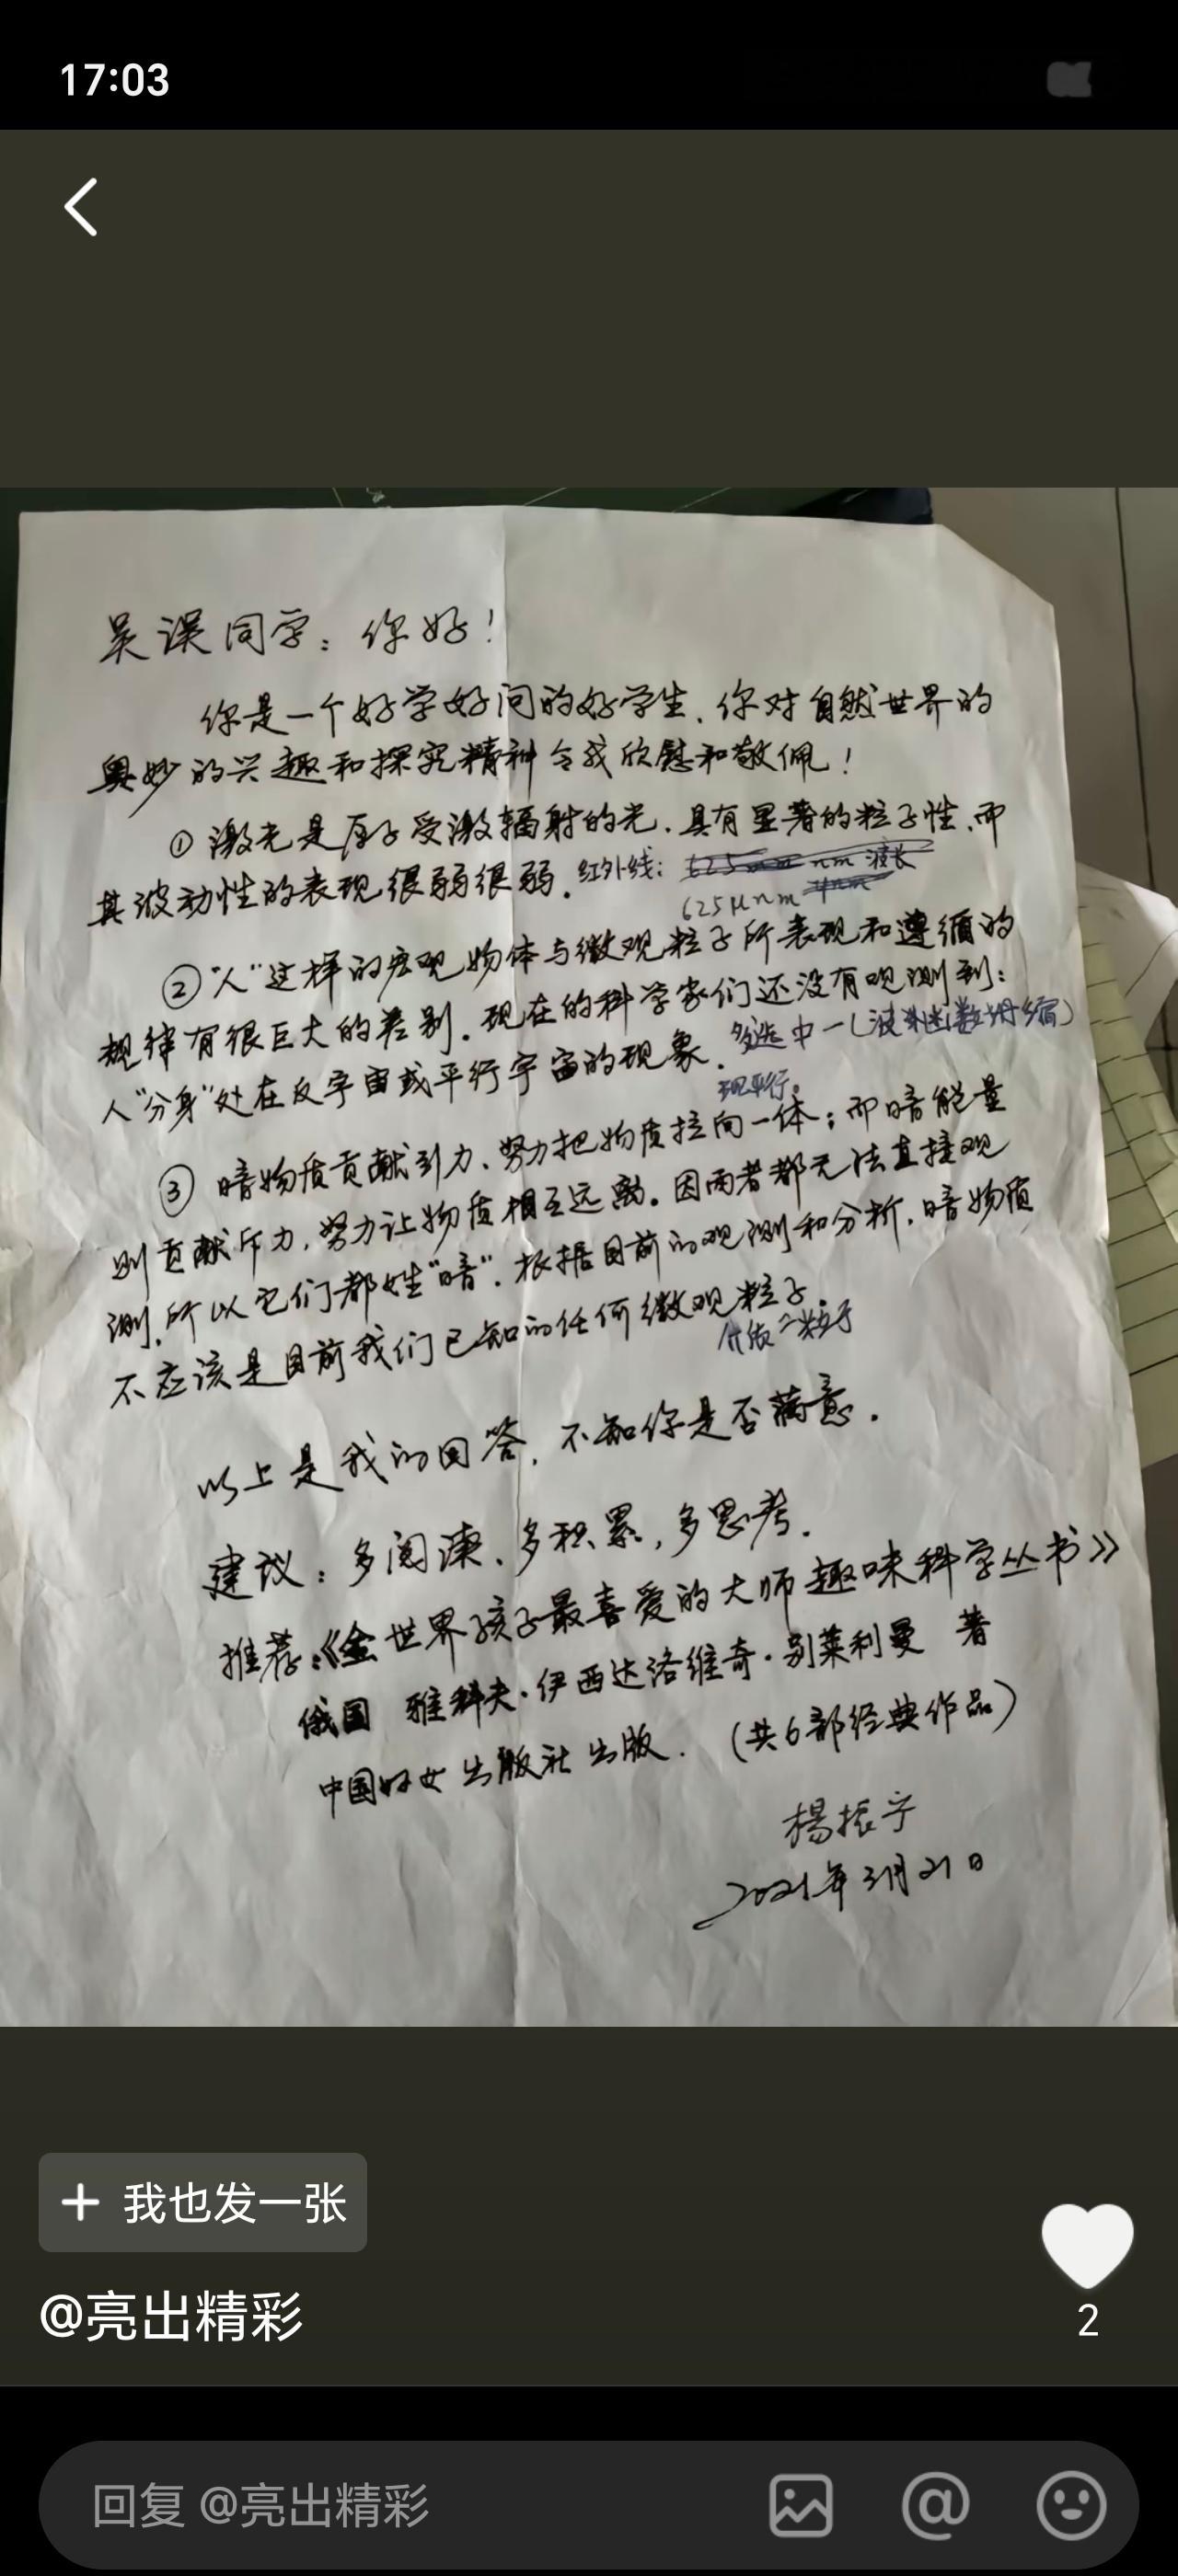 17:03
吴误同学：你好！
你是一个好学好问的好学生、你对自然世界的
奥妙的兴趣和探究精神令我欣慰和敬佩！
① 激光是原子受激辐射的光、具有显著的粒子性、而
其波动性的表现很弱很弱. 红外线： nm 波长
625μnm
②“人”这样的宏观物体与微观粒子所表现和遵循的
规律有很巨大的差别. 现在的科学家们还没有观测到：
人“分身”处在反宇宙或平行宇宙的现象. 多选中一(波 数坍缩)
平行。
③ 暗物质贡献引力、努力把物质拉向一体；而暗能量
则贡献斥力, 努力让物质相互远离。因两者都无法直接观
测, 所以它们都姓“暗”. 根据目前的观测和分析, 暗物质
不应该是目前我们已知的任何微观粒子.
粒子
以上是我的回答, 不知你是否满意.
建议：多阅读、多积累, 多思考.
推荐：《全世界孩子最喜爱的大师趣味科学丛书》
俄国 雅科夫·伊西达洛维奇·别莱利曼 著
中国妇女出版社出版. (共6部经典作品)
楊振宁
2021年3月21日
+ 我也发一张
@亮出精彩
2
回复 @亮出精彩